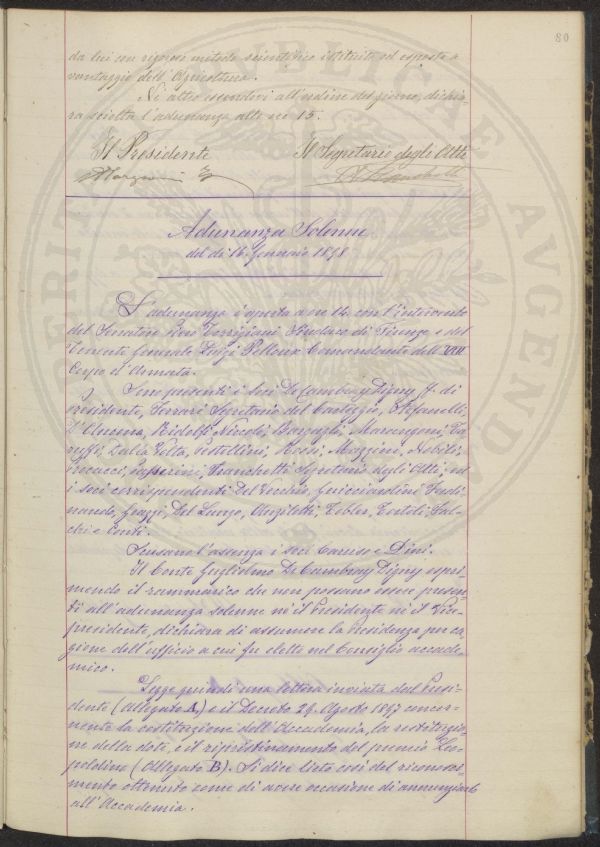 80
da lui con rigoroso metodo scientifico istituite ed esposte a
vantaggio dell'Agricoltura.
Ni altro essendovi all'ordine del giorno, dichia-
ra sciolta l'adunanza alle ore 15.
Il Presidente
Il Segretario degli Atti
Adunanza Solenne
del dì 16 Gennaio 1898
L'adunanza è aperta a ore 14 con l'intervento
del Senatore Piero Torrigiani Sindaco di Firenze e del
Tenente Generale Luigi Pelloux Comandante dell'VIII
Corpo d'Armata.
Sono presenti i Soci De Cambray Digny ff. di
presidente, Ferrari Segretario del Carteggio, Stefanelli,
D'Ancona, Ridolfi Niccolò, Bargagli, Marangoni, Ta-
ruffi, Dalla Volta, Pestellini, Rossi, Mazzini, Nobili,
Pucacci, Passerini, Franchetti Segretario degli Atti, ed
i soci corrispondenti Del Vecchio, Guicciardini Ferdi-
nando, Grazzi, Del Lungo, Anzilotti, Tobler, Tortoli, Fal-
chi e Conti.
Scusano l'assenza i soci Caruso e Dini.
Il Conte Guglielmo De Cambray Digny espri-
mendo il rammarico che non possano essere presen-
ti all'adunanza solenne nè il Presidente nè il Vice-
presidente, dichiara di assumere la Presidenza per ca-
gione dell'ufficio a cui fu eletto nel Consiglio accade-
mico.
Legge quindi una lettera inviata dal Presi-
dente (Allegato A) e il Decreto 29 Agosto 1897 concer-
nente la costituzione dell'Accademia, la restituzio-
ne della dote, e il ripristinamento del premio Leo-
poldino (Allegato B). Si dice lieto così del riconosci-
mento ottenuto come di avere occasione di annunziarlo
all'Accademia.